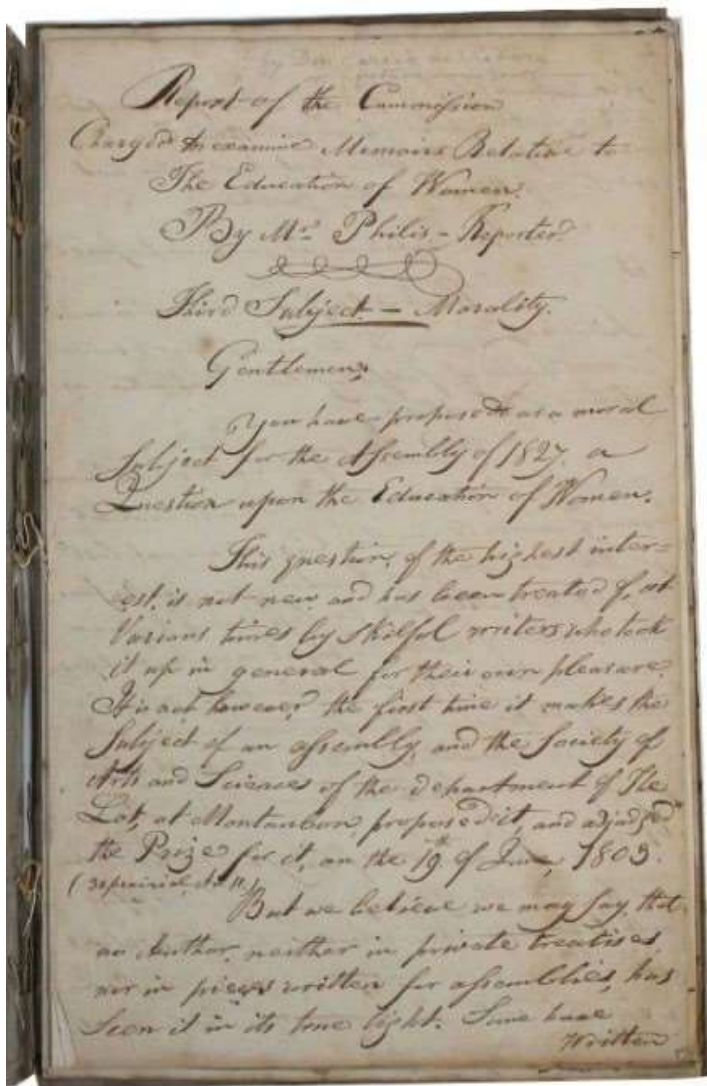 Report of the Commission
Charged to examine Memoirs Relative to
The Education of Women.
By Mr. Philis - Reporter.
Third Subject - Morality.
Gentlemen,
You have proposed as a moral
Subject for the Assembly of 1827. a
Question upon the Education of Women.
This question, of the highest inter=
est, is not new and has been treated of, at
Various times by skilful writers who took
it up in general for their own pleasure.
It is not however the first time it makes the
Subject of an assembly, and the Society of
Arts and Sciences of the department of The
Lot, at Montauban, proposed it, and adjudged
the Prize for it, on the 19th of June, 1803.
(30 prairial, 
But we believe we may say, that
an Author, neither in private treatises,
nor in pieces written for assemblies, has
seen it in its true light. Some have
Written